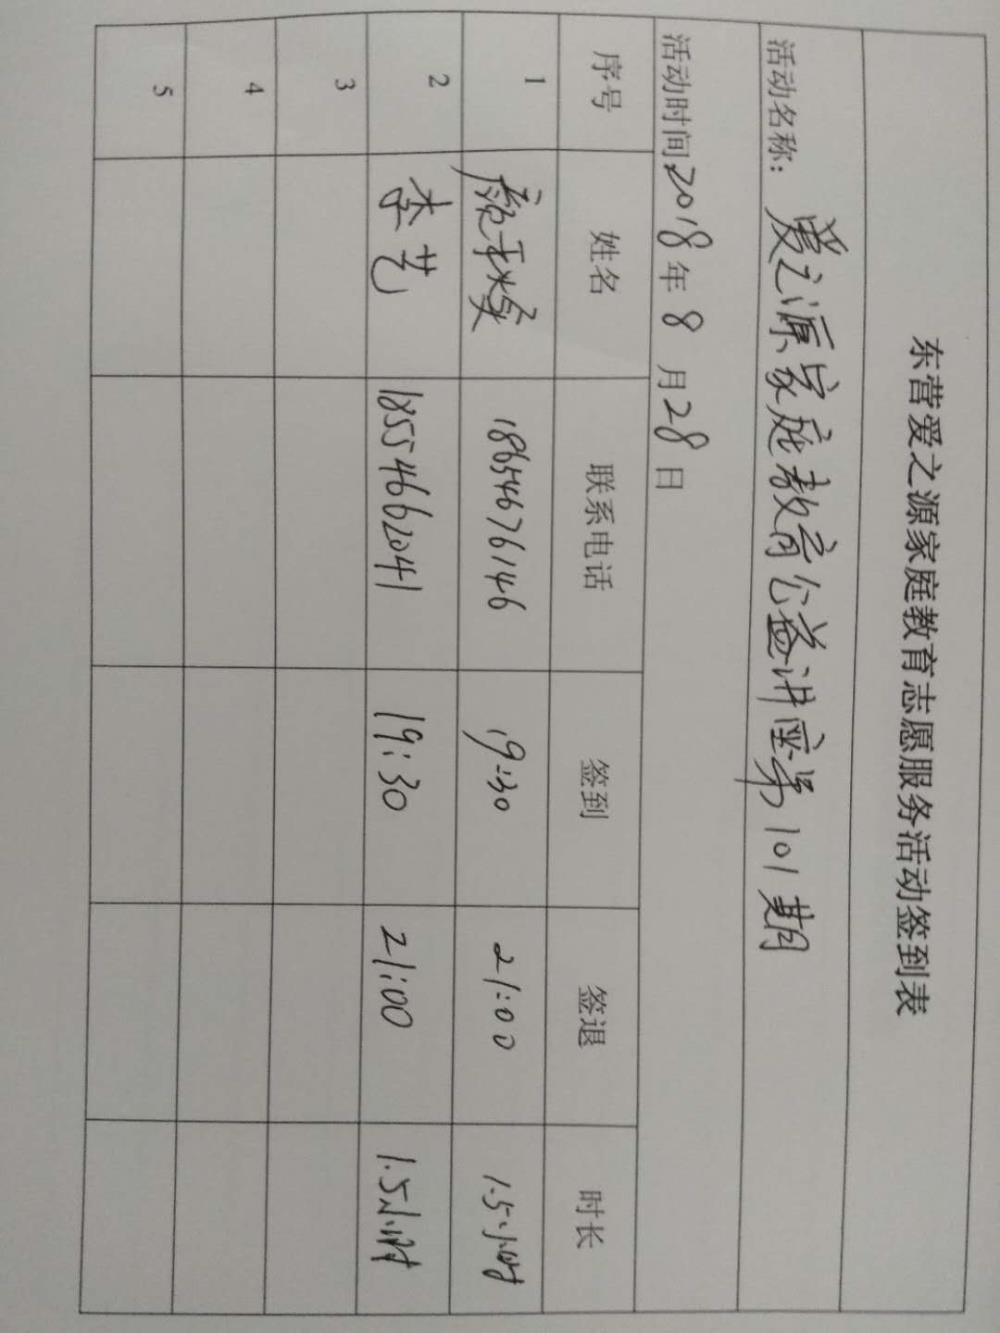 东营爱之源家庭教育志愿服务活动签到表
活动名称：爱之源家庭教育公益讲座第101期
活动时间2018年8月28日
序号 姓名 联系电话 签到 签退 时长
1 18654676146 19:30 21:00 1.5小时
2 李艺 18554662041 19:30 21:00 1.5小时
3
4
5